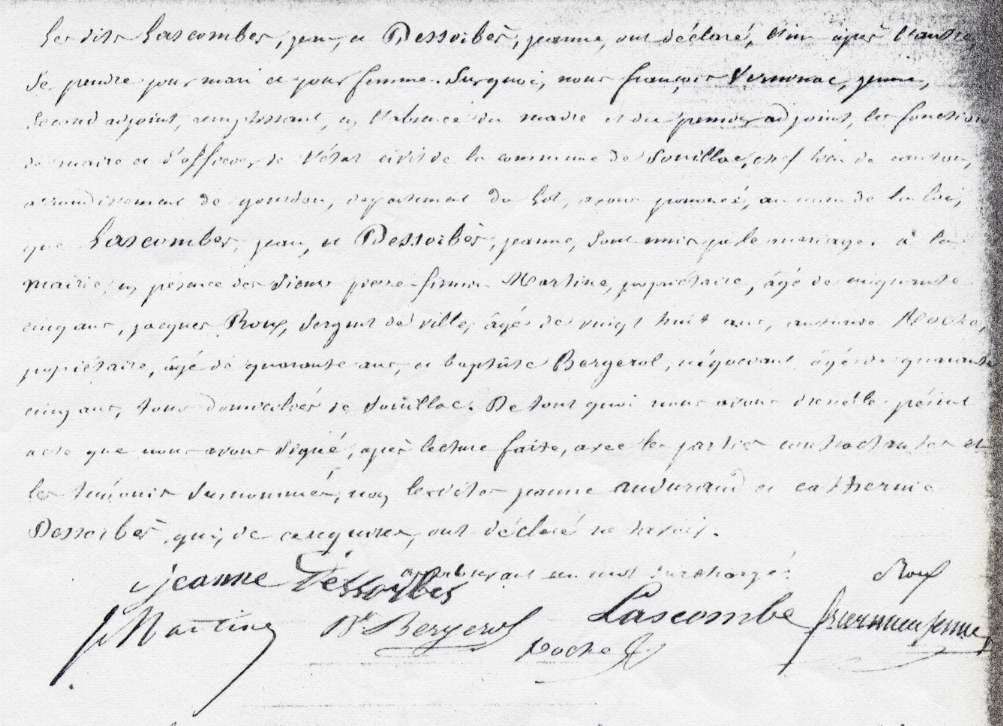 Les dits Lascombes, jean, et Dessorbès, jeanne, ont déclaré, l'un après l'autre,
se prendre pour mari et pour femme. Surquoi, nous françois Vernenac, jeune,
Second adjoint, remplissant, en l'absence du maire et du premier adjoint, les fonctions
de maire et d'officier de l'état civil de la commune de Souillac, chef lieu de canton,
arrondissement de gourdon, département du Lot, avons prononcé, au nom de la loi,
que Lascombes, jean, et Dessorbès, jeanne, sont unis par le mariage. à la
mairie, en présence des sieurs pierre-firmin Martine, propriétaire, âgé de cinquante
cinq ans, jacques Roux, sergent de ville, âgé de vingt huit ans, Poche,
propriétaire, âgé de quarante ans, et baptiste Bergerol, négociant âgé de quarante
cinq ans, tous domiciliés de Souillac. De tout quoi nous avons dressé le présent
acte que nous avons signé, après lecture faite, avec les parties contractantes et
les témoins surnommés, non lesdites jeanne andurand et catherine
Dessorbès, qui, de ce requises, ont déclaré ne savoir.
approuvant un mot surchargé.
jeanne Dessorbes Roux
Martine Bte Bergerol Lascombe jeune
Poche